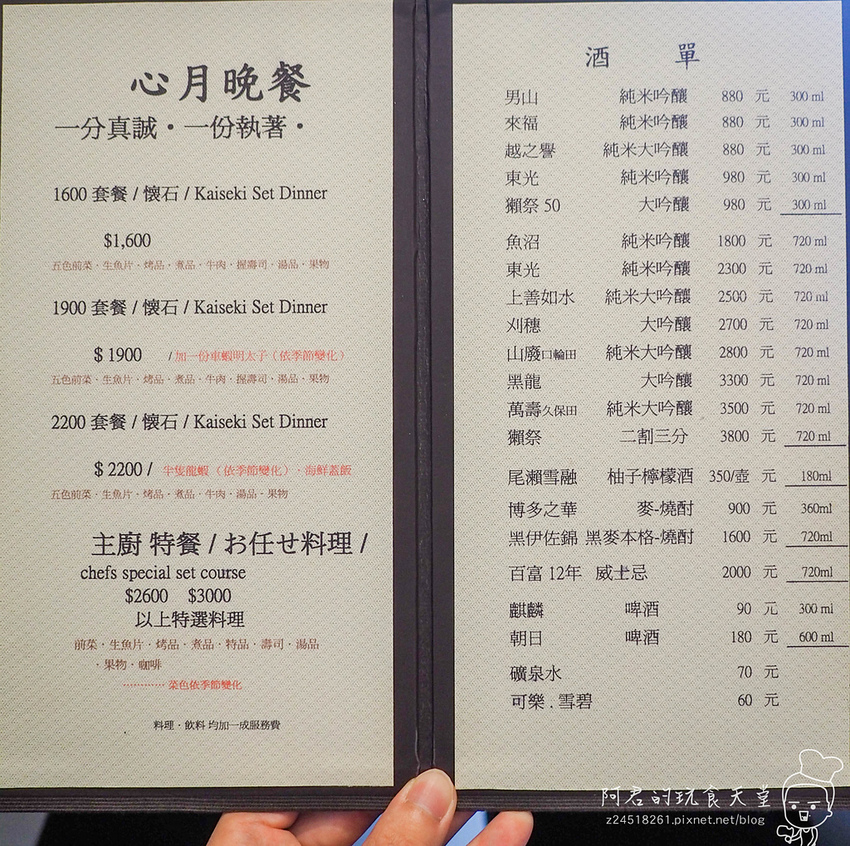 心月晚餐
一分真誠・一份執著・
1600 套餐 / 懷石 / Kaiseki Set Dinner
$1,600
五色前菜・生魚片・烤品・煮品・牛肉・握壽司・湯品・果物
1900 套餐 / 懷石 / Kaiseki Set Dinner
$ 1900 / 加一份車蝦明太子 (依季節變化)
五色前菜・生魚片・烤品・煮品・牛肉・握壽司・湯品・果物
2200 套餐 / 懷石 / Kaiseki Set Dinner
$ 2200 / 半隻龍蝦 (依季節變化)・海鮮蓋飯
五色前菜・生魚片・烤品・煮品・牛肉・湯品・果物
主廚 特餐 / お任せ料理 /
chefs special set course
$2600 $3000
以上特選料理
前菜・生魚片・烤品・煮品・特品・壽司・湯品
・果物・咖啡
………… 菜色依季節變化
料理・飲料 均加一成服務費
酒 單
男山 純米吟釀 880 元 300 ml
來福 純米吟釀 880 元 300 ml
越之譽 純米大吟釀 880 元 300 ml
東光 純米吟釀 980 元 300 ml
獺祭 50 大吟釀 980 元 300 ml
魚沼 純米吟釀 1800 元 720 ml
東光 純米吟釀 2300 元 720 ml
上善如水 純米大吟釀 2500 元 720 ml
刈穗 大吟釀 2700 元 720 ml
山廢口輪田 純米大吟釀 2800 元 720 ml
黑龍 大吟釀 3300 元 720 ml
萬壽久保田 純米大吟釀 3500 元 720 ml
獺祭 二割三分 3800 元 720 ml
尾瀨雪融 柚子檸檬酒 350/壺 180ml
博多之華 麥-燒酎 900 元 360ml
黑伊佐錦 黑麥本格-燒酎 1600 元 720ml
百富 12年 威士忌 2000 元 720ml
麒麟 啤酒 90 元 300 ml
朝日 啤酒 180 元 600 ml
礦泉水 70 元
可樂 . 雪碧 60 元
阿君的玩食天堂
z24518261.pixnet.net/blog